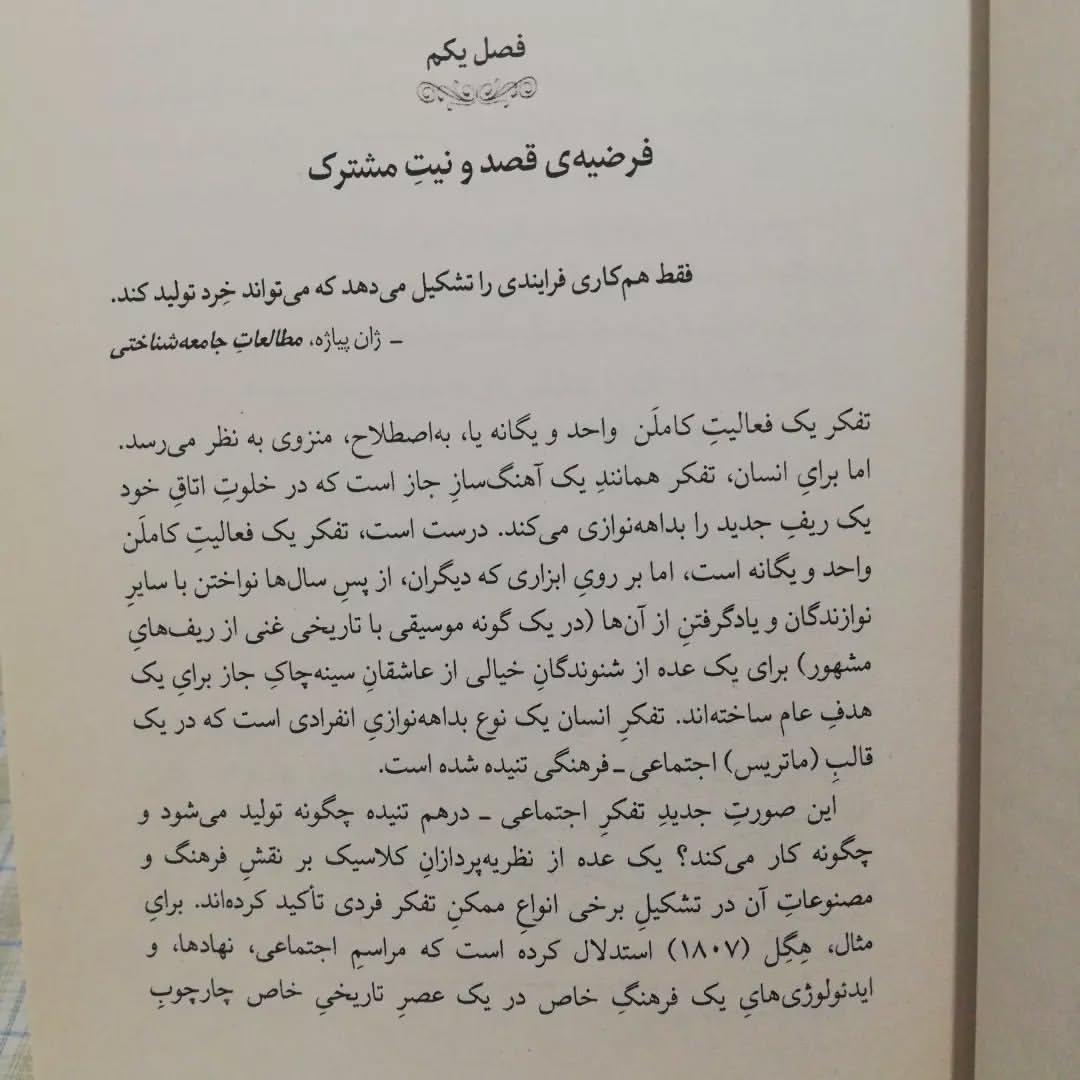 فصل یکم
فرضیه‌ی قصد و نیتِ مشترک
فقط هم‌کاری فرایندی را تشکیل می‌دهد که می‌تواند خِرد تولید کند.
ـ ژان پیاژه، مطالعاتِ جامعه‌شناختی
تفکر یک فعالیتِ کاملَن واحد و یگانه یا، به‌اصطلاح، منزوی به نظر می‌رسد.
اما برایِ انسان، تفکر همانندِ یک آهنگ‌سازِ جاز است که در خلوتِ اتاقِ خود
یک ریفِ جدید را بداهه‌نوازی می‌کند. درست است، تفکر یک فعالیتِ کاملَن
واحد و یگانه است، اما بر رویِ ابزاری که دیگران، از پسِ سال‌ها نواختن با سایرِ
نوازندگان و یادگرفتنِ از آن‌ها (در یک گونه موسیقی با تاریخی غنی از ریف‌هایِ
مشهور) برای یک عده از شنوندگانِ خیالی از عاشقانِ سینه‌چاکِ جاز برایِ یک
هدفِ عام ساخته‌اند. تفکرِ انسان یک نوع بداهه‌نوازیِ انفرادی است که در یک
قالبِ (ماتریس) اجتماعی ـ فرهنگی تنیده شده است.
این صورتِ جدیدِ تفکرِ اجتماعی ـ درهم تنیده چگونه تولید می‌شود و
چگونه کار می‌کند؟ یک عده از نظریه‌پردازانِ کلاسیک بر نقشِ فرهنگ و
مصنوعاتِ آن در تشکیلِ برخی انواعِ ممکنِ تفکر فردی تأکید کرده‌اند. برایِ
مثال، هِگِل (۱۸۰۷) استدلال کرده است که مراسمِ اجتماعی، نهادها، و
ایدئولوژی‌هایِ یک فرهنگِ خاص در یک عصرِ تاریخیِ خاص چارچوبِ